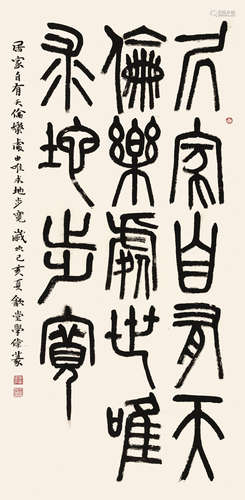 居家自有天
倫樂處世唯
求地步寬
居家自有天倫樂處世唯求地步寬 歲次己亥夏 堂學篆